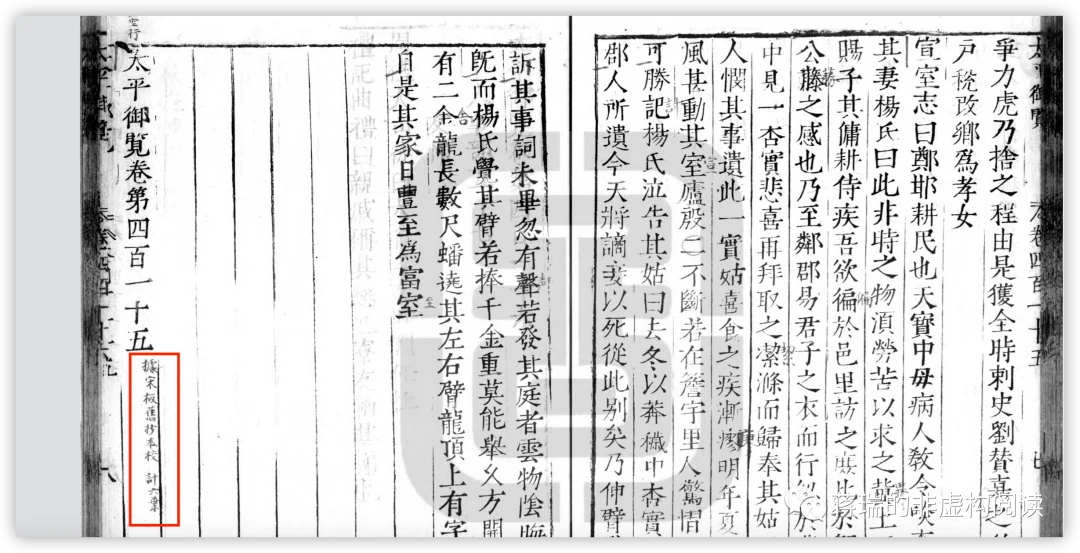 爭力虎乃捨之程由是獲全時刺史劉賛嘉之
戶稅改鄉爲孝女
宣室志曰鄭耶耕民也天寶中毋病人敎令啖
其妻楊氏曰此非時之物湏勞苦以求之
賜子其傭耕侍疾吾欲徧於邑里訪之庻
公藤之感也乃至鄰郡易君子之衣而行
中見一杏實悲喜再拜取之潔滌而歸奉其姑
人憫其事遺此一實姑喜食之疾漸瘳明年夏
風甚動其室廬殷二不斷若在簷宇里人驚
可勝記楊氏泣告其姑曰去冬以莽穢中杏實
郡人所遺今天將謫妾以死從此别矣乃伸臂
訴其事詞未畢忽有聲若發其庭者雲物陰晦
旣而楊氏覺其臂若捧千金重莫能舉幺方開
有二金龍長數尺蟠遶其左右臂龍頂上有字
自是其家日豐至爲富室
太平御覧卷第四百一十五
據宋板舊抄本校 計六葉
的非虚构阅读